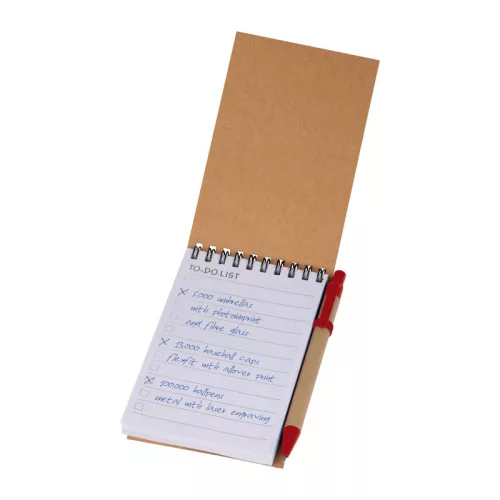 TO-DO LIST
5,000 umbrellas
with photoinprint
and fibre glass
13,000 baseball caps
flexfit with allover print
100,000 ballpens
metal with laser engraving